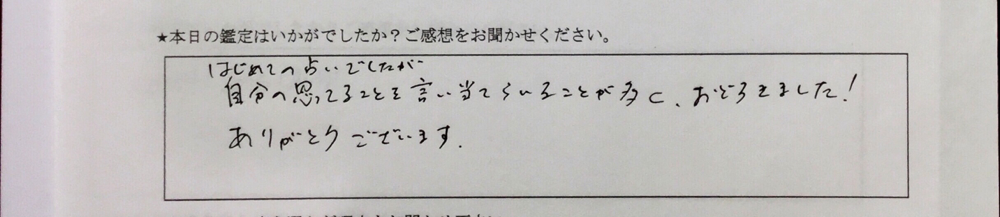 ★本日の鑑定はいかがでしたか？ご感想をお聞かせください。
はじめての占いでしたが
自分の思ってることを言い当てらいることが多く、おどろきました！
ありがとうございます.